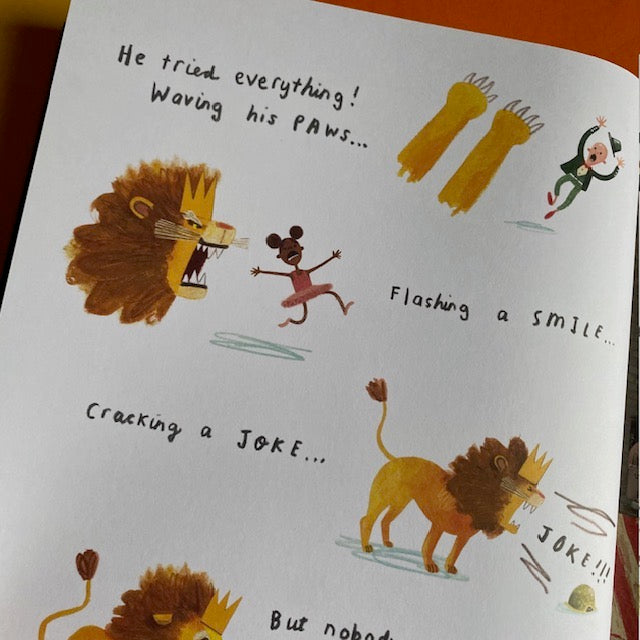 He tried everything!
Waving his PAWS...
Flashing a SMILE...
Cracking a JOKE...
JOKE!!!
But